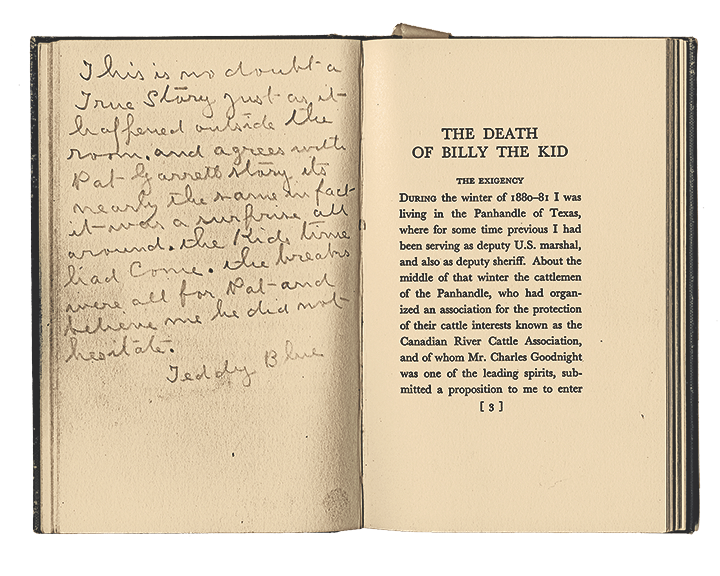 This is no doubt a
True Story just as it
happened outside the
room. and agrees with
Pat Garretts story its
nearly the same in fact
it was a surprise all
around. the Kids time
had Come. the breaks
were all for Pat and
believe me he did not
hesitate.
Teddy Blue
THE DEATH
OF BILLY THE KID
THE EXIGENCY
DURING the winter of 1880–81 I was
living in the Panhandle of Texas,
where for some time previous I had
been serving as deputy U.S. marshal,
and also as deputy sheriff. About the
middle of that winter the cattlemen
of the Panhandle, who had organ-
ized an association for the protection
of their cattle interests known as the
Canadian River Cattle Association,
and of whom Mr. Charles Goodnight
was one of the leading spirits, sub-
mitted a proposition to me to enter
[ 3 ]